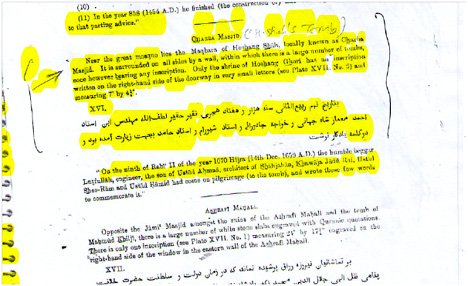 (10)
(11) In the year 858 (1454 A.D.) he finished (the construction of)
to that parting advice."
CHATRA MASJID. (H. Shah's Tomb)
Near the great mosque lies the Maqbara of Hoshang Shāh, locally known as Chatra
Masjid. It is surrounded on all sides by a wall, within which there is a large number of tombs,
none however bearing any inscription. Only the shrine of Hoshang Ghori has an inscription
written on the right-hand side of the doorway in very small letters (see Plate XVII, No. 2) and
measuring 7" by 4½".
XVI.
بتاریخ نهم ربیع الثانی سنه هزار و هفتاد هجری فقیر حقیر لطف الله مهندس ابن استاد
احمد معمار شاه جهانی و خواجه جادورای و استاد شیورام و استاد حامد بجهت زیارت آمده بودند و
دو کلمه یادگار نوشت
"On the ninth of Rabi' II of the year 1070 Hijra (14th Dec. 1659 A.D.) the humble beggar
Luṭfullāh, engineer, the son of Ustād Aḥmad, architect of Shāhjahān, Khwāja Jādū Rāi, Ustād
Sheo-Rām and Ustād Ḥāmid had come on pilgrimage (to the tomb), and wrote these few words
to commemorate it."
ASHRAFI MAHALL.
Opposite the Jāmi' Masjid amongst the ruins of the Ashrafi Maḥall and the tomb of
Maḥmūd Khiljī, there is a large number of white stone slabs engraved with Quranic quotations.
There is only one inscription (see Plate XVII. No. 1) measuring 24" by 17½" engraved on the
right-hand side of the window in eastern wall of the Ashrafi Maḥall.
XVII.
بر تماشائیان فیروزه رواق پوشیده نماند که در زمان دولت و سلطنت حضرت خلافت
پناهی ظل الهی جلال الدین